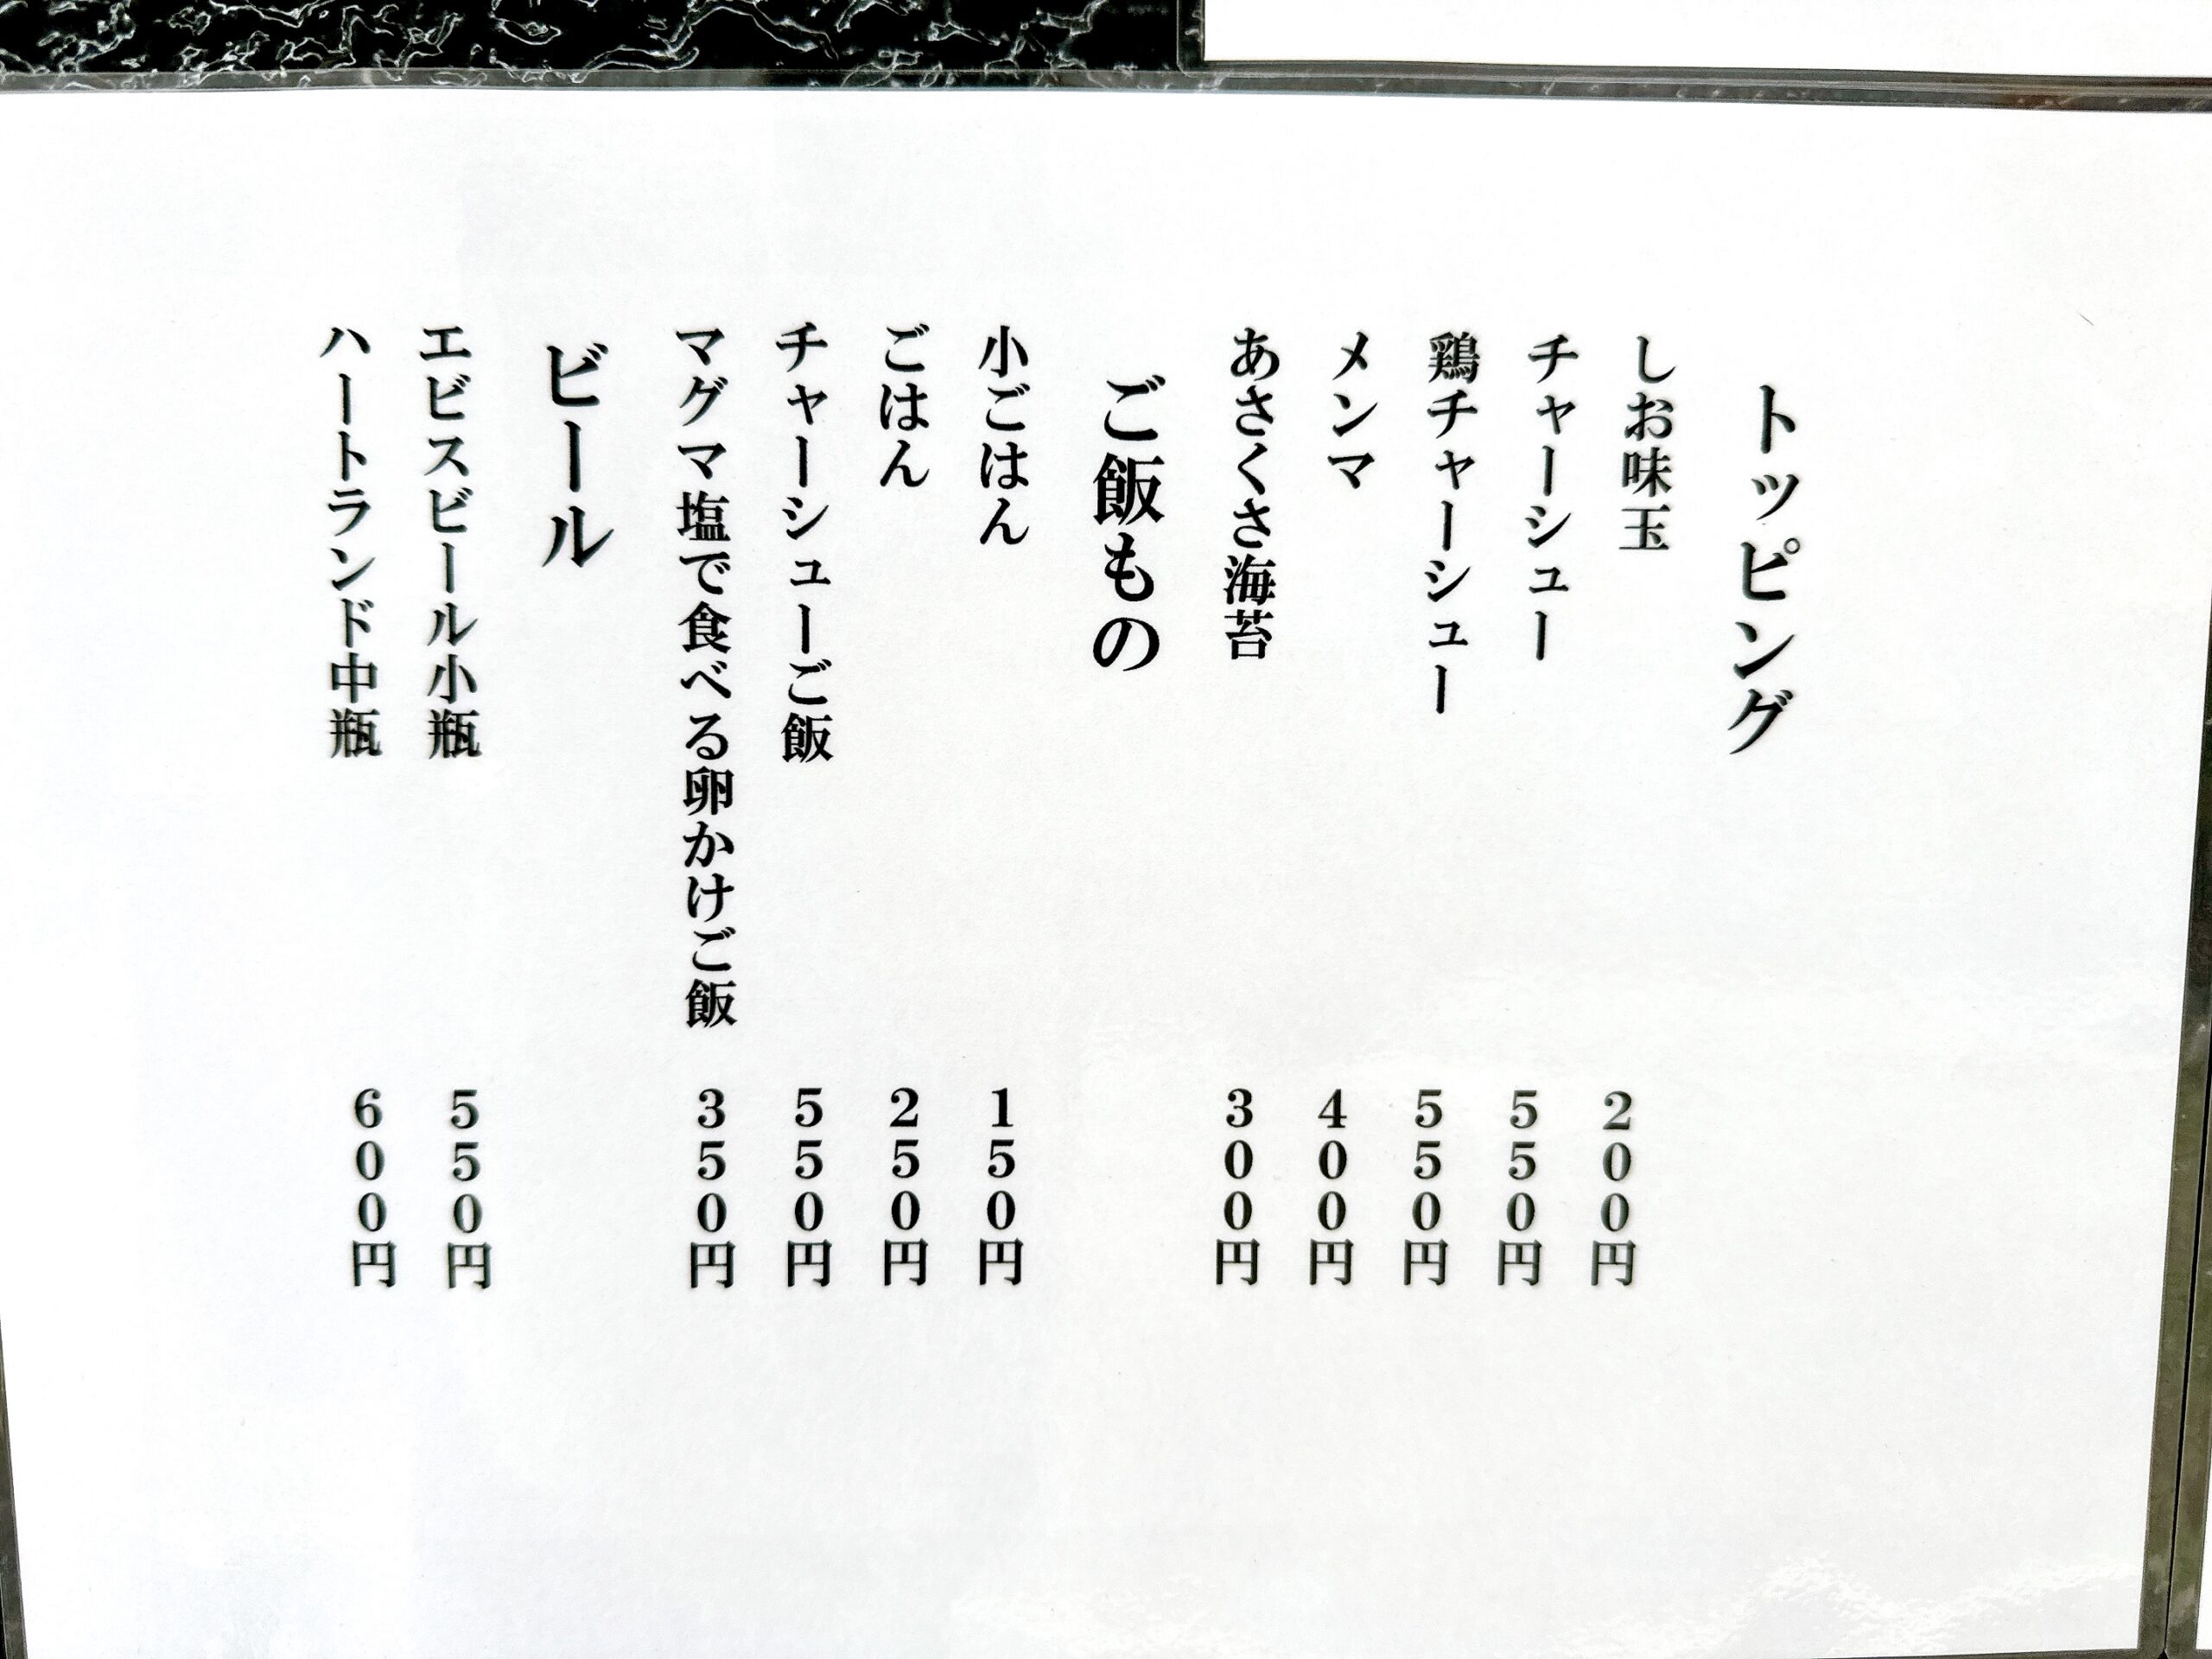 トッピング
しお味玉 200円
チャーシュー 550円
鶏チャーシュー 550円
メンマ 400円
あさくさ海苔 300円
ご飯もの
小ごはん 150円
ごはん 250円
チャーシューご飯 550円
マグマ塩で食べる卵かけご飯 350円
ビール
エビスビール小瓶 550円
ハートランド中瓶 600円